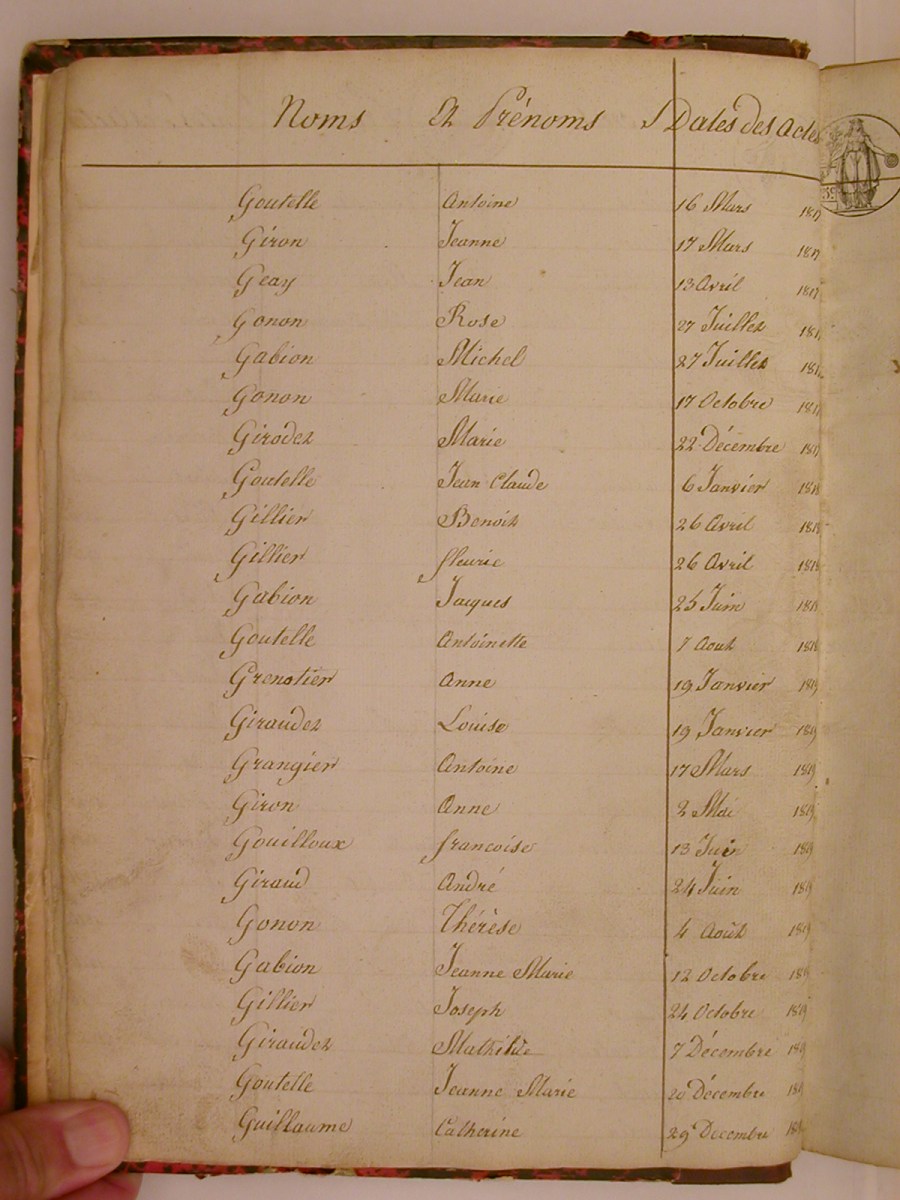 Noms Et Prénoms Dates des actes
Goutelle Antoine 16 Mars 1817
Giron Jeanne 17 Mars 1817
Geay Jean 13 Avril 1817
Gonon Rose 27 Juillet
Gabion Michel 27 Juillet
Gonon Marie 17 Octobre 1817
Girodet Marie 22 Décembre 1817
Goutelle Jean Claude 6 Janvier 1818
Gillier Benoit 26 Avril 1818
Gillier fleurie 26 Avril 1818
Gabion Jacques 25 Juin 1818
Goutelle Antoinette 7 Aout 1818
Grenotier Anne 19 Janvier 1819
Giraudet Louise 19 Janvier 1819
Grangier Antoine 17 Mars 1819
Giron Anne 2 Mai 1819
Gouilloux francoise 13 Juin 1819
Giraud André 24 Juin 1819
Gonon Thérèse 4 Août 1819
Gabion Jeanne Marie 12 Octobre 1819
Gillier Joseph 24 Octobre 1819
Giraudet Mathilde 7 Décembre 1819
Goutelle Jeanne Marie 20 Décembre
Guillaume Catherine 29 Decembre